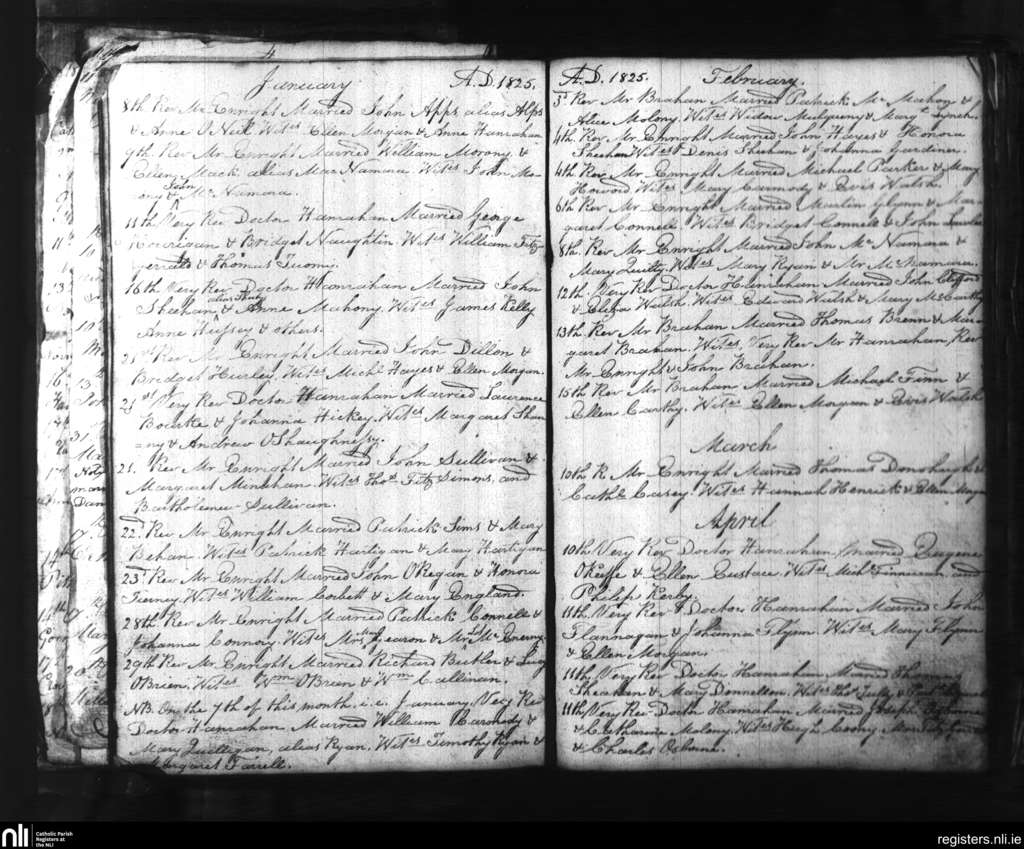 January A.D. 1825.
8th Rev Mr Enright Married John Apps alias Alps
& Anne O Neil. Wit.es Ellen Morgan & Anne Hanrahan
9th. Rev Mr Enright Married William Morony &
Ellen Mack alias Mac Namara. Wit.es John Mo-
John
ony & Mc Namara.
11th Very Rev Doctor Hanrahan Married George
Hourigan & Bridget Naughtin. Wit.es William Fitz
gerrald & Thomas Tuomy.
16th Very Rev Doctor Hanrahan Married John
alias
Sheehan & Anne Mahony. Wit.es James Kelly
Anne Hussey & others.
21st Rev Mr Enright Married John Dillon &
Bridget Hurley. Wit.es Michl Hayes & Ellen Morgan.
21st Very Rev Doctor Hanrahan Married Laurence
Bourke & Johanna Hickey. Wit.es Margaret Shan
=ny & Andrew OShaughnessy.
21. Rev Mr Enright Married John Sullivan &
Margaret Minehan. Wit.es Thos Fitz Simons, and
Bartholemew Sullivan.
22.d Rev Mr Enright Married Patrick Sims & Mary
Behan. Wit.es Patrick Hartigan & Mary Hartigan
23d. Rev Mr Enright Married John O'Regan & Honora
Tierney. Wit.es William Corbett & Mary England.
28th Rev Mr Enright Married Patrick Connell &
Johanna Connory. Wit.es Mrs & Mrs Mc Enerny
29th Rev Mr Enright Married Richard Butler & Lucy
OBrien. Wit.es Wm OBrian & Wm Cullinan.
NB. On the 7th of this month i.e. January Very Rev
Doctor Hanrahan Married William Carmody &
Mary Quilligan, alias Ryan. Wit.es Timothy Ryan &
Margaret Farrell.
A.D. 1825. February.
3d Rev Mr Brahan Married Patrick Mc Mahon &
Alice Molony. Wit.es Widow Mulqueny & Mary Lynch.
4th Rev. Mr. Enright Married John Hayes & Honora
Sheehan Wit.es Denis Sheehan & Johanna Gardiner.
4th Rev Mr. Enright Married Michael Parker & Mary
Howord Wit.es Mary Carmody & Evis Walsh.
6th Rev Mr. Enright Married Martin Glynn & Mar-
garet Connell. Wit.es Bridget Connell & John
8th. Rev Mr. Enright Married John Mc Namara &
Mary Quilty. Wit.es Mary Ryan & Mr Mc Namara.
12th. Very Rev Doctor Hanrahan Married John Clifford
& Eliza Walsh Wit.es Edward Walsh & Mary McCarthy
13th. Rev Mr Brahan Married Thomas Brenn & Mar-
garet Brahan. Wit.es Very Rev Mr Hanrahan, Rev
Mr. Enright & John Brahan.
15th Rev Mr. Brahan Married Michael Finn &
Ellen Carthy. Wit.es Ellen Morgan & Evis Walsh
March
10th R. Mr. Enright Married Thomas Donohugh &
Cathe Casey. Wit.es Hannah Henrick & Ellen Morgan
April
10th Very Rev Doctor Hanrahan Married Eugene
OKeeffe & Ellen Eustace. Wit.es Michl Finneran and
Philip Kerby.
11th Very Rev Doctor Hanrahan Married John
Flannagan & Johanna Flynn. Wit.es Mary Flynn
& Ellen Morgan.
11th Very Rev Doctor Hanrahan Married Thomas
Sheahan & Mary Donnellon. Wit.es Thos Tully &
11th Very Rev Doctor Hanrahan Married Joseph
& Catharine Molony. Wit.es Hugh
& Charles Osborne.
nli Catholic Parish
Registers at
the NLI
registers.nli.ie